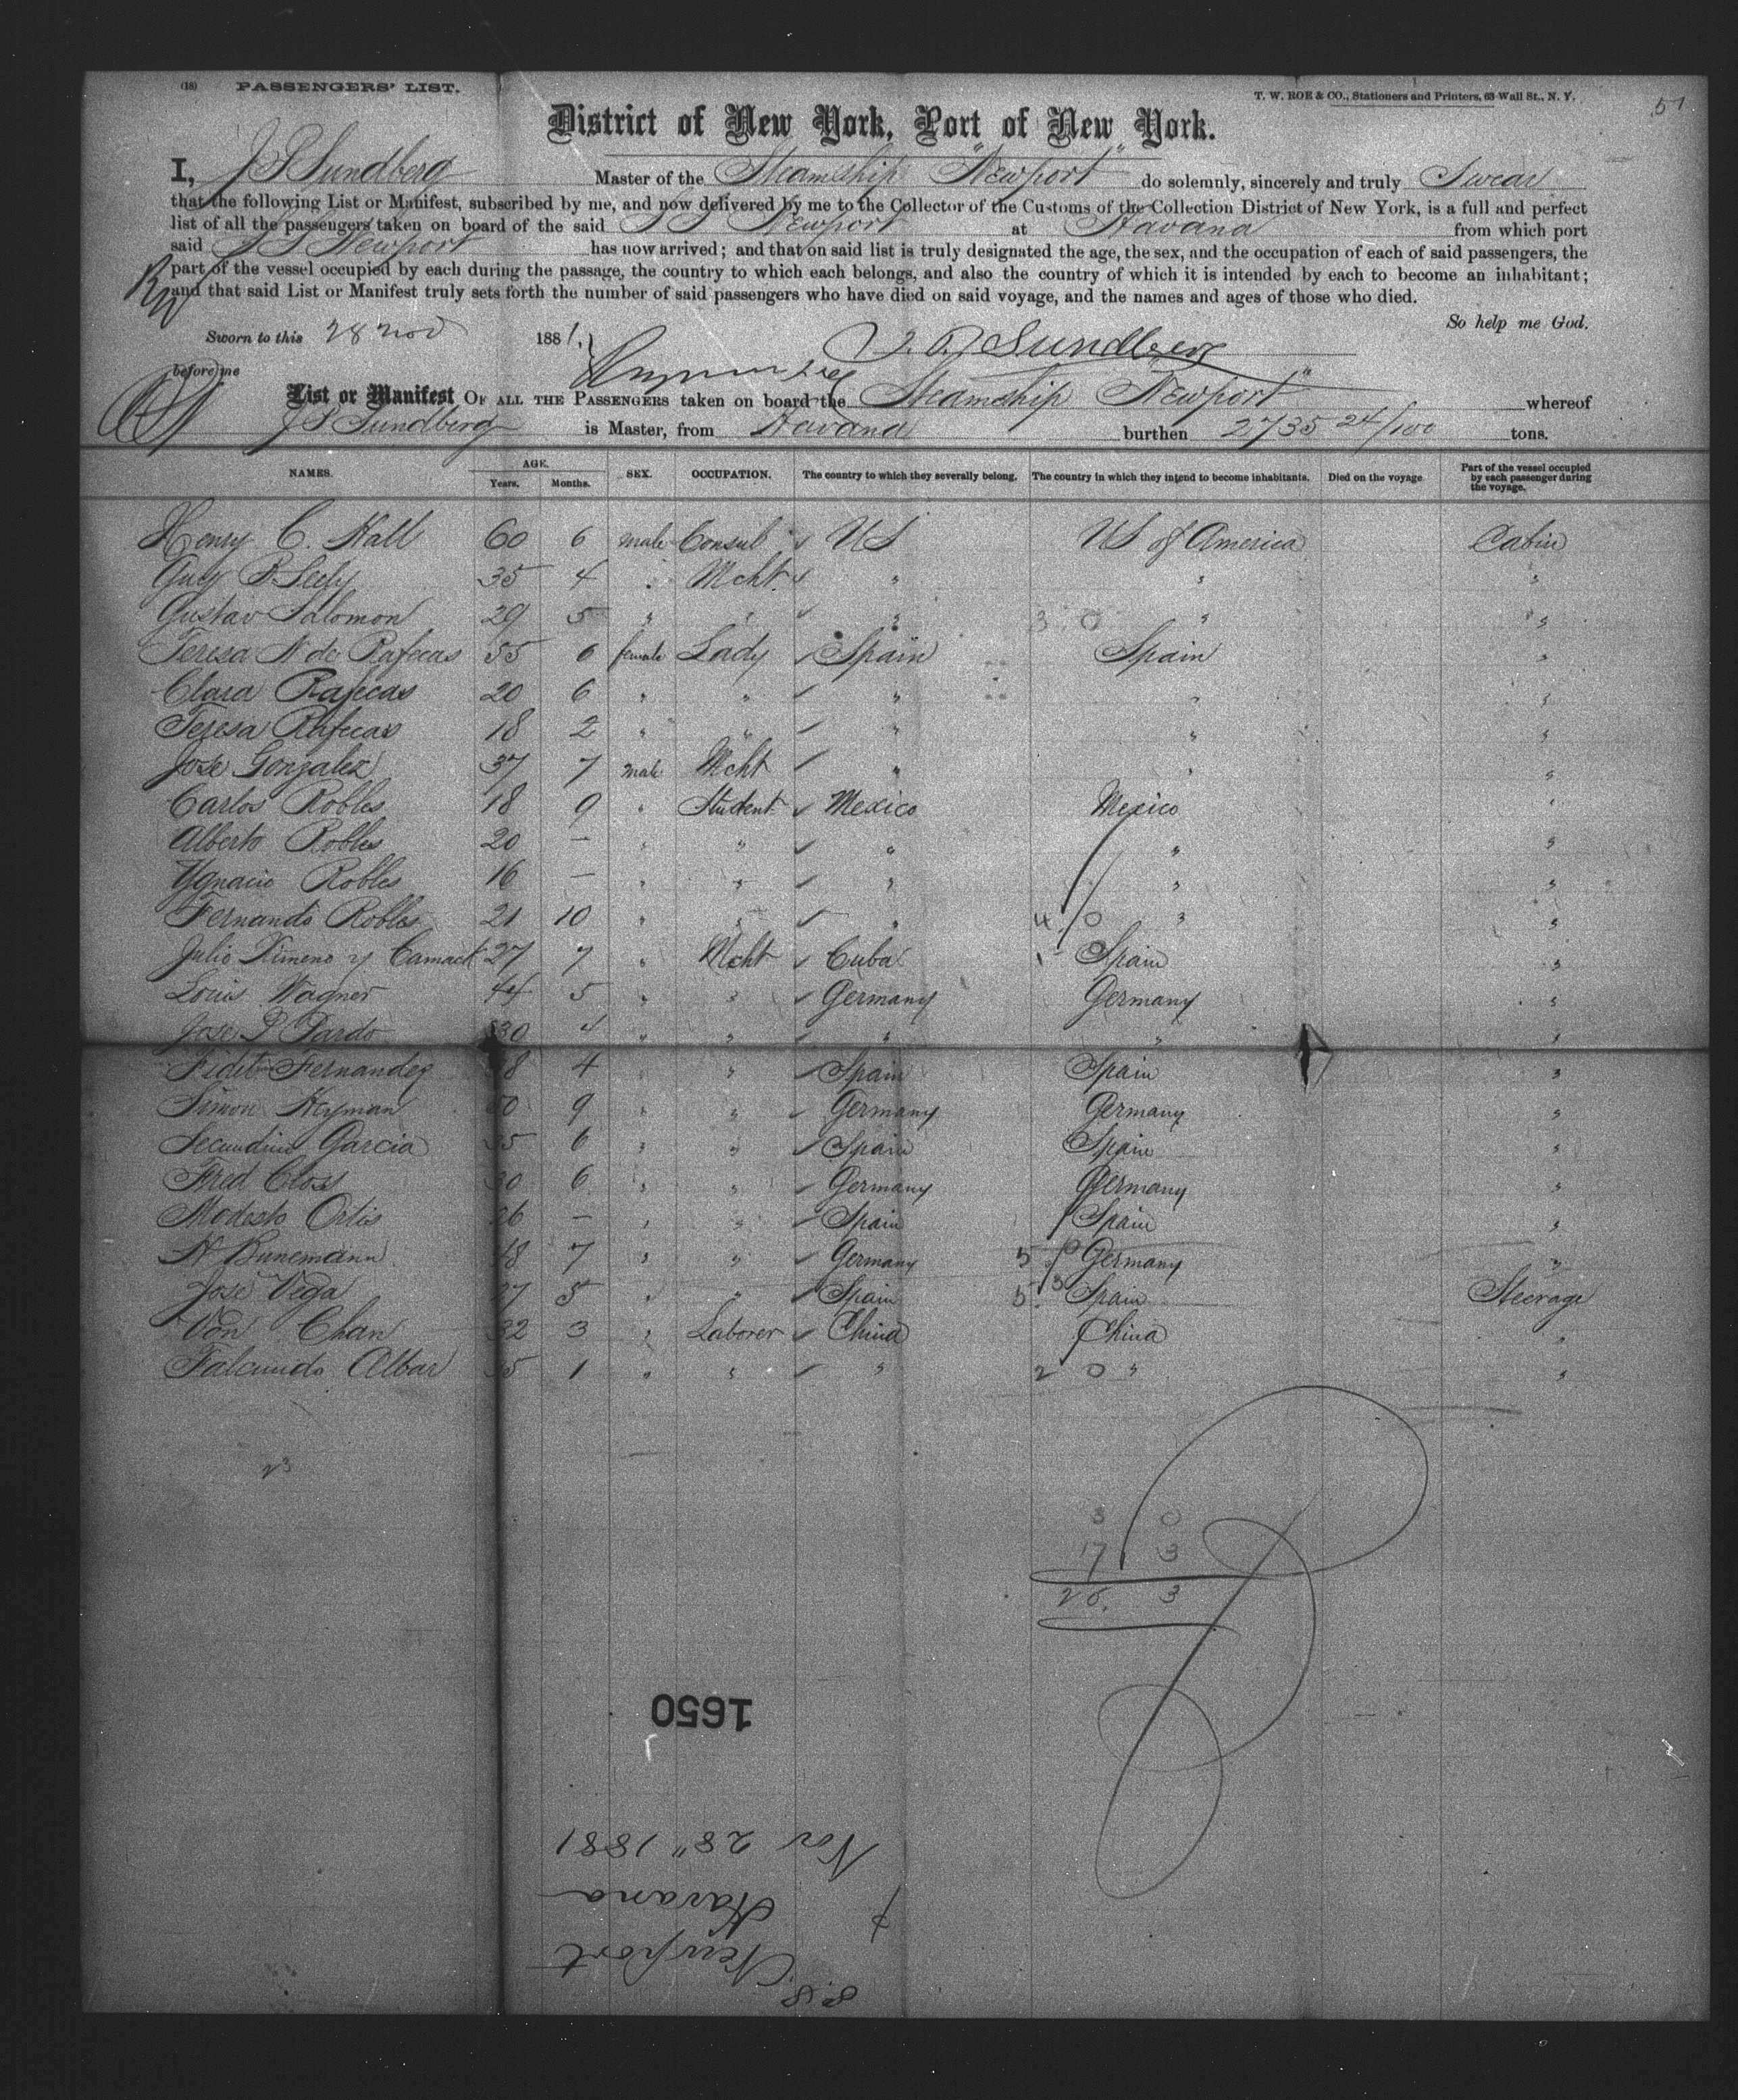 (18) PASSENGERS' LIST.
T. W. ROE & CO., Stationers and Printers, 63 Wall St., N. Y.
51
District of New York, Port of New York.
I, J P Sundberg Master of the Steamship "Newport" do solemnly, sincerely and truly Swear
that the following List or Manifest, subscribed by me, and now delivered by me to the Collector of the Customs of the Collection District of New York, is a full and perfect
list of all the passengers taken on board of the said S S Newport at Havana from which port
said S S Newport has now arrived; and that on said list is truly designated the age, the sex, and the occupation of each of said passengers, the
part of the vessel occupied by each during the passage, the country to which each belongs, and also the country of which it is intended by each to become an inhabitant;
and that said List or Manifest truly sets forth the number of said passengers who have died on said voyage, and the names and ages of those who died.
So help me God.
Sworn to this 28 Nov 1881,
J. P. Sundberg
before me
List or Manifest OF ALL THE PASSENGERS taken on board the Steamship Newport" whereof
J P Sundberg is Master, from Havana burthen 2735 24/100 tons.
NAMES. AGE. Years. Months. SEX. OCCUPATION. The country to which they severally belong. The country in which they intend to become inhabitants. Died on the voyage. Part of the vessel occupied by each passenger during the voyage.
Henry C. Hall 60 6 male Consul US US of America Cabin
Guy B Seely 35 4 " Mcht. " " "
Gustav Salomon 29 5 " " " 3 0 " "
Teresa N de Rafecas 55 6 female Lady Spain Spain "
Clara Rafecas 20 6 " " " " "
Teresa Rafecas 18 2 " " " " "
Jose Gonzalez 37 7 male Mcht " " "
Carlos Robles 18 9 " Student Mexico Mexico "
Alberto Robles 20 — " " " " "
Ygnacio Robles 16 — " " " " "
Fernando Robles 21 10 " " " 4 0 " "
Julio Ximeno y Camack 27 7 " Mcht Cuba 1 Spain "
Louis Wagner 44 5 " " Germany Germany "
Jose P Pardo 30 4 " " " " "
Fernandez 8 4 " " Spain Spain "
Simon Heyman 50 9 " " Germany Germany "
Secundino Garcia 35 6 " " Spain Spain "
Fred Closs 30 6 " " Germany Germany "
Modesto Ortis 26 — " " Spain Spain "
H Bunemann 48 7 " " Germany 5 0 Germany "
Jose Vega 27 5 " " Spain 5 3 Spain Steerage
Von Chan 32 3 " Laborer China China "
Falcundo Albar 35 1 " " " 2 0 " "
23
3 0
17 3
20. 3
1650
S.S. Newport
Havana
Nov 28" 1881